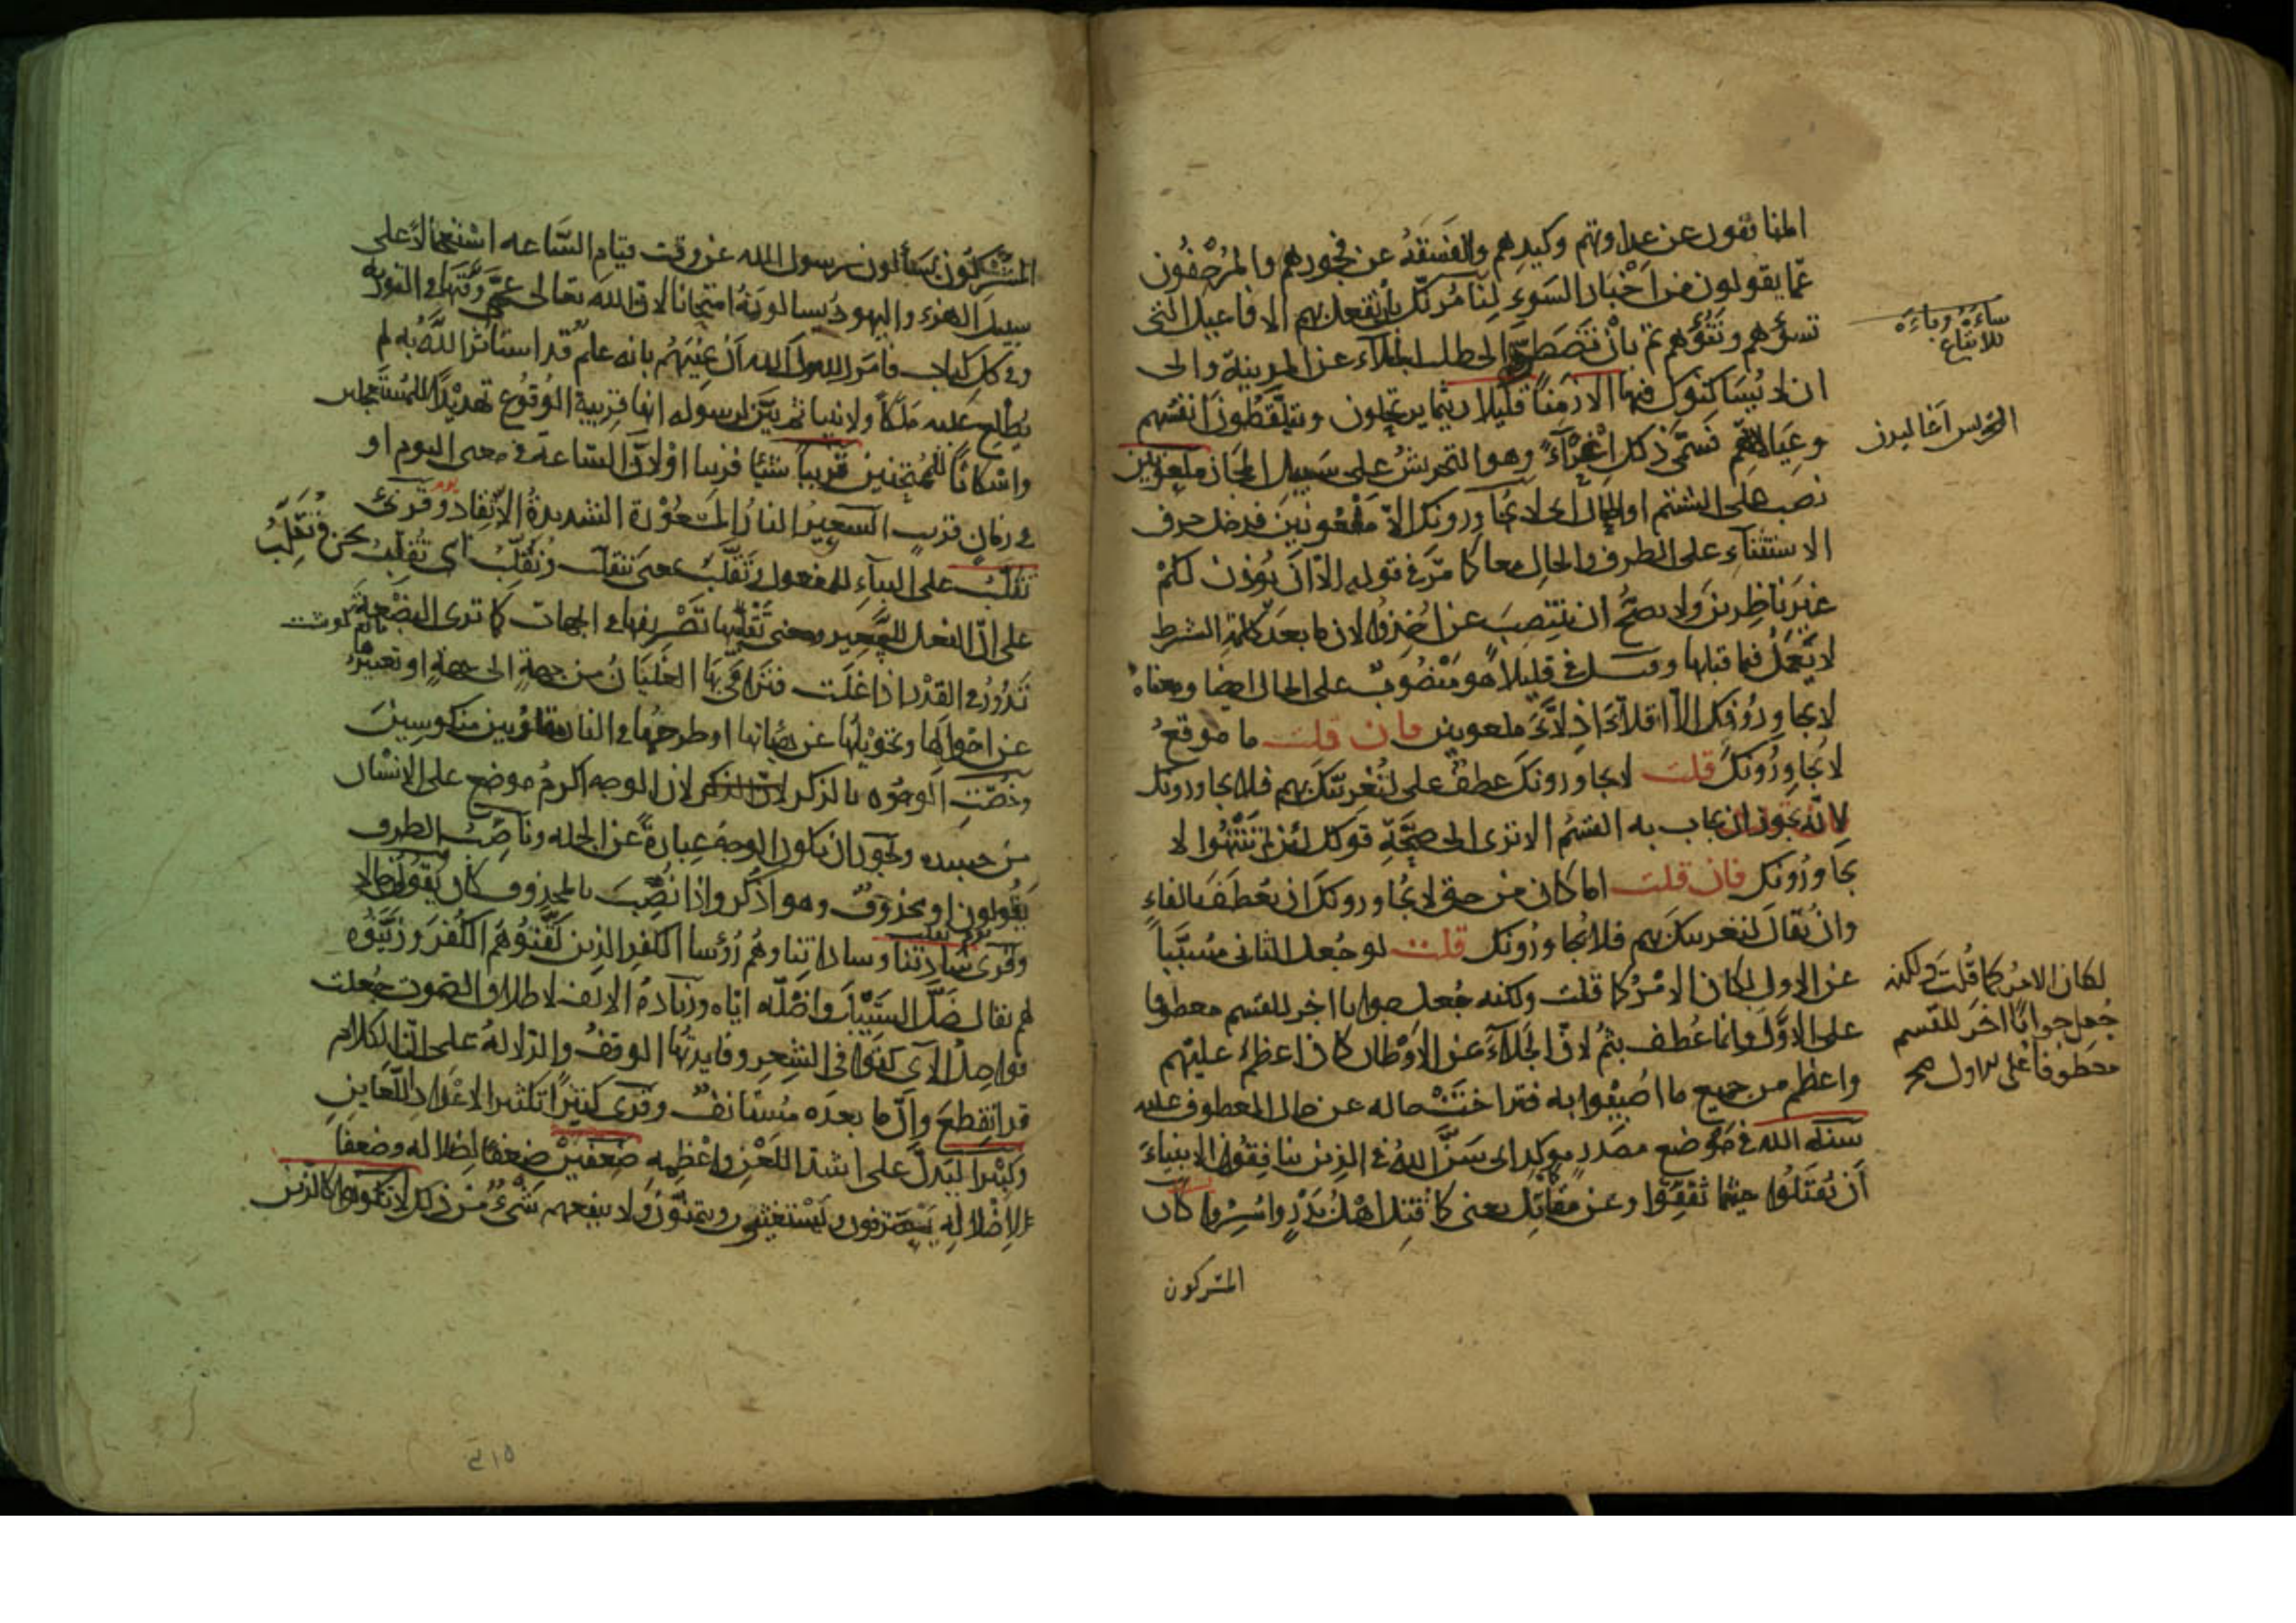 المنافقون عن عداوتهم وكيدهم والفسقة عن فجورهم والمرجفون
عما يقولون من اخبار السوء لنامرنك بان تفعل بهم الافاعيل التى
تسوؤهم وتنوؤهم ثم بان تضطرهم الى طلب الجلاء عن المدينة والى
ان لا يساكنوك فيها الا زمنا قليلا ريثما يرتحلون ويتلقطون انفسهم
وعيالاتهم فسمى ذلك اغراء وهو التحريش على سبيل المجاز ملعونين
نصب على الشتم او الحال اى لا يجاورونك الا ملعونين فدخل حرف
الاستثناء على الظرف والحال معا كما مر فى قوله الا ان يؤذن لكم
غير ناظرين ولا يصح ان ينتصب عن اخذوا لان ما بعد كلمة الشرط
لا يعمل فيما قبلها وقيل فى قليلا هو منصوب على الحال ايضا ومعناه
لا يجاورونك الا اقلاء اذلاء ملعونين فان قلت ما موقع
لا يجاورونك قلت لا يجاورونك عطف على لنغرينك بهم فلا يجاورونك
لانه يجوز ان يجاب به القسم الا ترى الى صحة قولك لئن لم ينتهوا لا
يجاورونك فان قلت اما كان من حق لا يجاورونك ان يعطف بالفاء
وان يقال لنغرينك بهم فلا يجاورونك قلت لو جعل الثانى مسببا
عن الاول لكان الامر كما قلت ولكنه جعل جوابا اخر للقسم معطوفا
على الاول وانما عطف بثم لان الجلاء عن الاوطان كان اعظم عليهم
واعظم من جميع ما اصيبوا به فتراخت حاله عن حال المعطوف عليه
سنة الله فى موضع مصدر موكد اى سن الله فى الذين ينافقون الانبياء
ان يقتلوا حيثما ثقفوا وعن مقاتل يعنى كما قتل اهل بدر واسروا كان
المشركون
ساءه وناءه
للاتباع
التحريش
لكان الامر كما قلت ولكنه
جعل جوابا اخر للقسم
معطوفا على الاول صح
المشركون يسألون رسول الله عن وقت قيام الساعه استعجالا على
سبيل الهزء واليهود يسالونه امتحانا لان الله تعالى عمى وقتها فى التورية
وفى كل كتاب فامر الله رسول الله ان يجيبهم بانه علم قد استأثر الله به لم
يطلع عليه ملكا ولا نبيا ثم بين لرسوله انها قريبة الوقوع تهديدا للمستعجلين
واسكاتا للممتحنين قريبا شيئا قريبا او لان الساعة فى معنى اليوم او
فى زمان قريب السعير النار المسعورة الشديدة الاتقاد وقرئ
تقلب على البناء للمفعول وتقلب بمعنى تتقلب ونقلب اى نقلب نحن وتقلب
على ان الفعل للسعير ومعنى تقليبها تصريفها فى الجهات كما ترى البضعة
تدور فى القدر اذا غلت فترامى بها الغليان من جهة الى جهة او تغييرها
عن احوالها وتحويلها عن هيآتها او طرحها فى النار مقلوبين منكوسين
وخصت الوجوه بالذكر لان الوجه اكرم موضع على الانسان
من جسده ويجوز ان يكون الوجه عبارة عن الجمله وناصب الظرف
يقولون او محذوف وهو اذكر واذا نصب بالمحذوف كان يقولون حالا
وقرئ سادتنا وساداتنا وهم رؤسا الكفر الذين لقنوهم الكفر وزينوه
لهم يقال ضل السبيل واضله اياه وزيادة الالف لاطلاق الصوت جعلت
فواصل الآى كقوافى الشعر وفايدتها الوقف والدلالة على ان الكلام
قد انقطع وان ما بعده مستانف وقرى كثيرا تكثيرا لاعداد اللعاين
وكبيرا ليدل على اشد اللعن واعظمه ضعفين ضعفا لضلاله وضعفا
لاضلاله يعترفون ويستغيثون ويتمنون ولا ينفعهم شئ من ذلك لا تكونوا كالذين